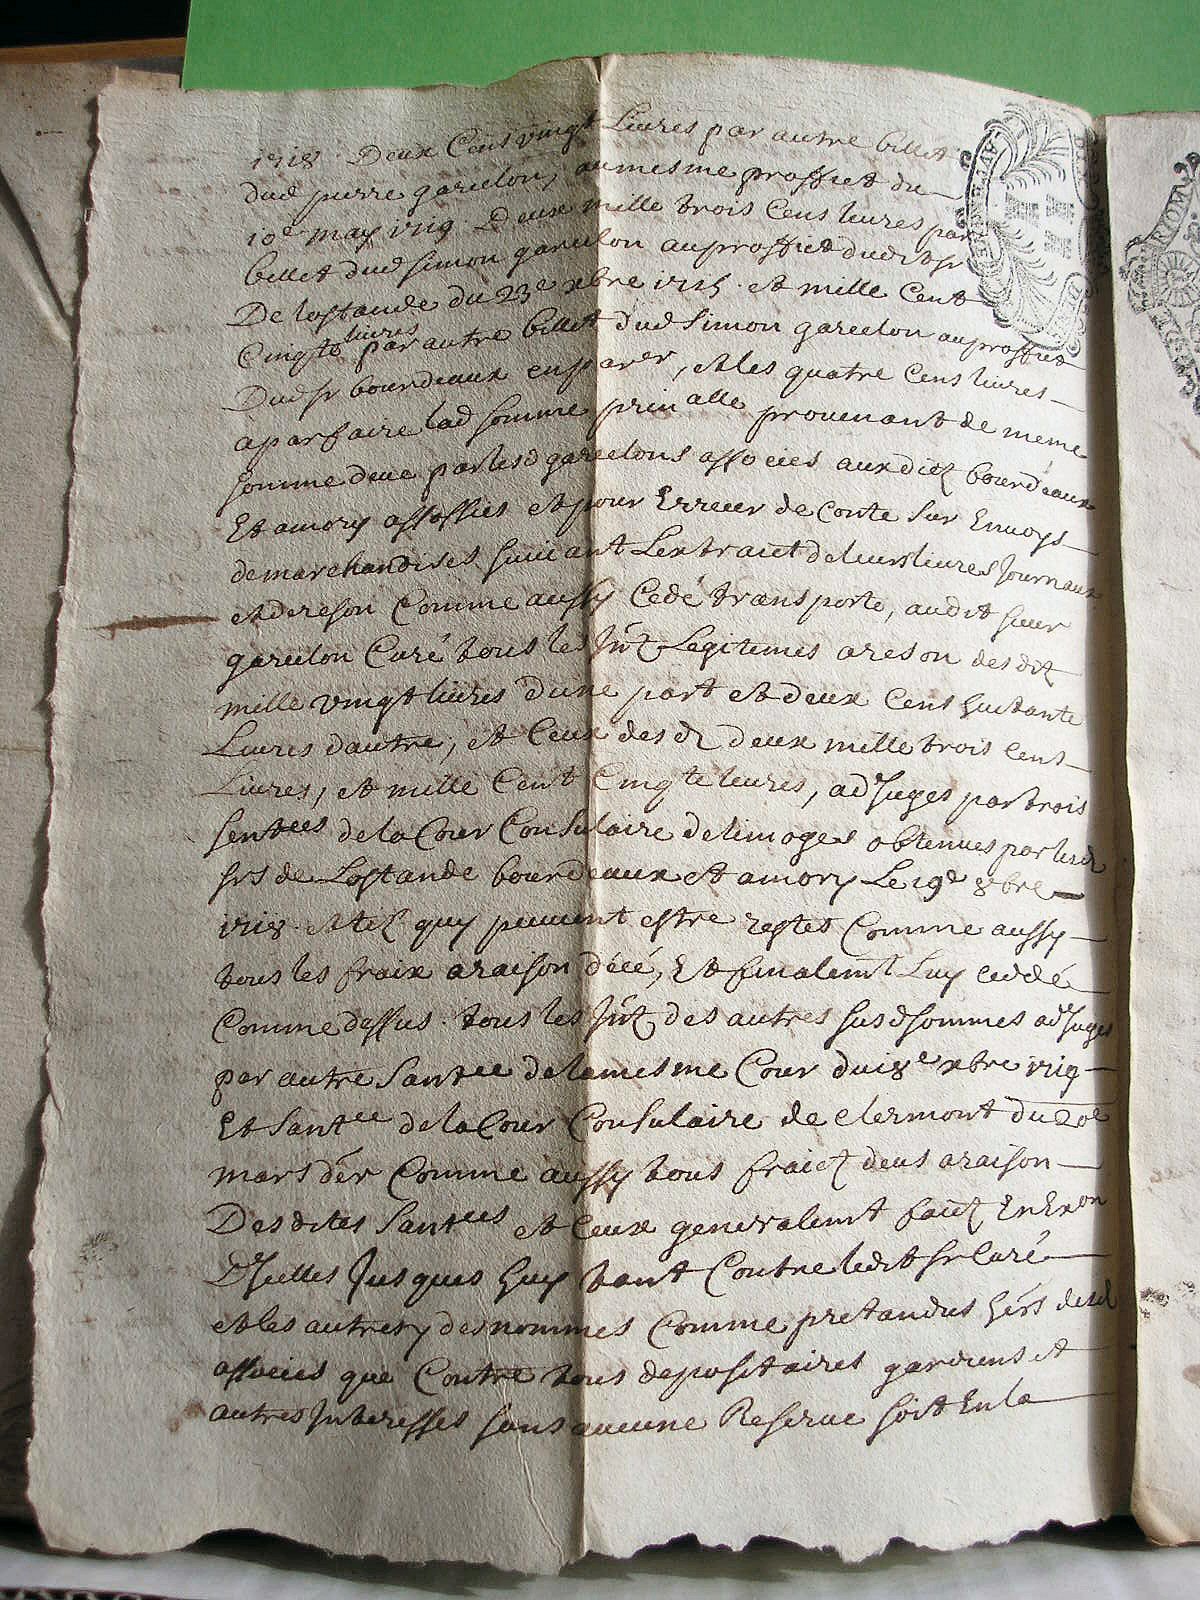 1718. Deux Cens vingt Livres par autre billet
dud pierre garcelon, aumesme proffict du
10e may 1719 Deux mille trois Cens livres par
billet dud simon garcelon auproffict dudit sr
De lostande du 23e xbre 1715. et mille Cent
Cinqte livres par autre billet dud Simon garcelon auproffict
Dud sr bourdeaux , et les quatre Cens livres
aparfaire lad somme prin alle provenant de meme
somme deue par lesd garcelons associes auxdicz bourdeaux
Et amory assossies et pour Erreur de Conte Sur Envoys
demarchandises suivant Lextraict deleurs livres Journaux
et Comme aussy Cedé transporte, audit sieur
garcelon Curé tous les Légitimes areson desdit
mille vingt livres dune part et deux Cens
Livres dautre, et Ceux des d deux mille trois Cens
Livres, et mille Cent Cinqte livres, adjuges par trois
Sentees de la Cour Consulaire delimoges obtenues par lesd
srs de Lostande bourdeaux et amory Le 19e 8bre
1718. et telz quy peuvent estre restes Comme aussy
tous les fraix araison décé, Et finalemt Luy ceddé
Comme dessus. tous les des autres susd sommes adjuges
par autre Santee delamesme Cour du 18e xbre 1719
Et Santee de la Cour Consulaire de Clermont du 20e
mars der Comme aussy tous fraicz deus araison
Des dites Santees et Ceux generalemt faicz En Exon
Dicelles Jusques huy tant Contre ledit sr Curé
et les autres y desnommes Comme pretandus hérs desd
associes que Contre tous depositaires gardiens et
autres Interesses sans aucune Reserve soit En la